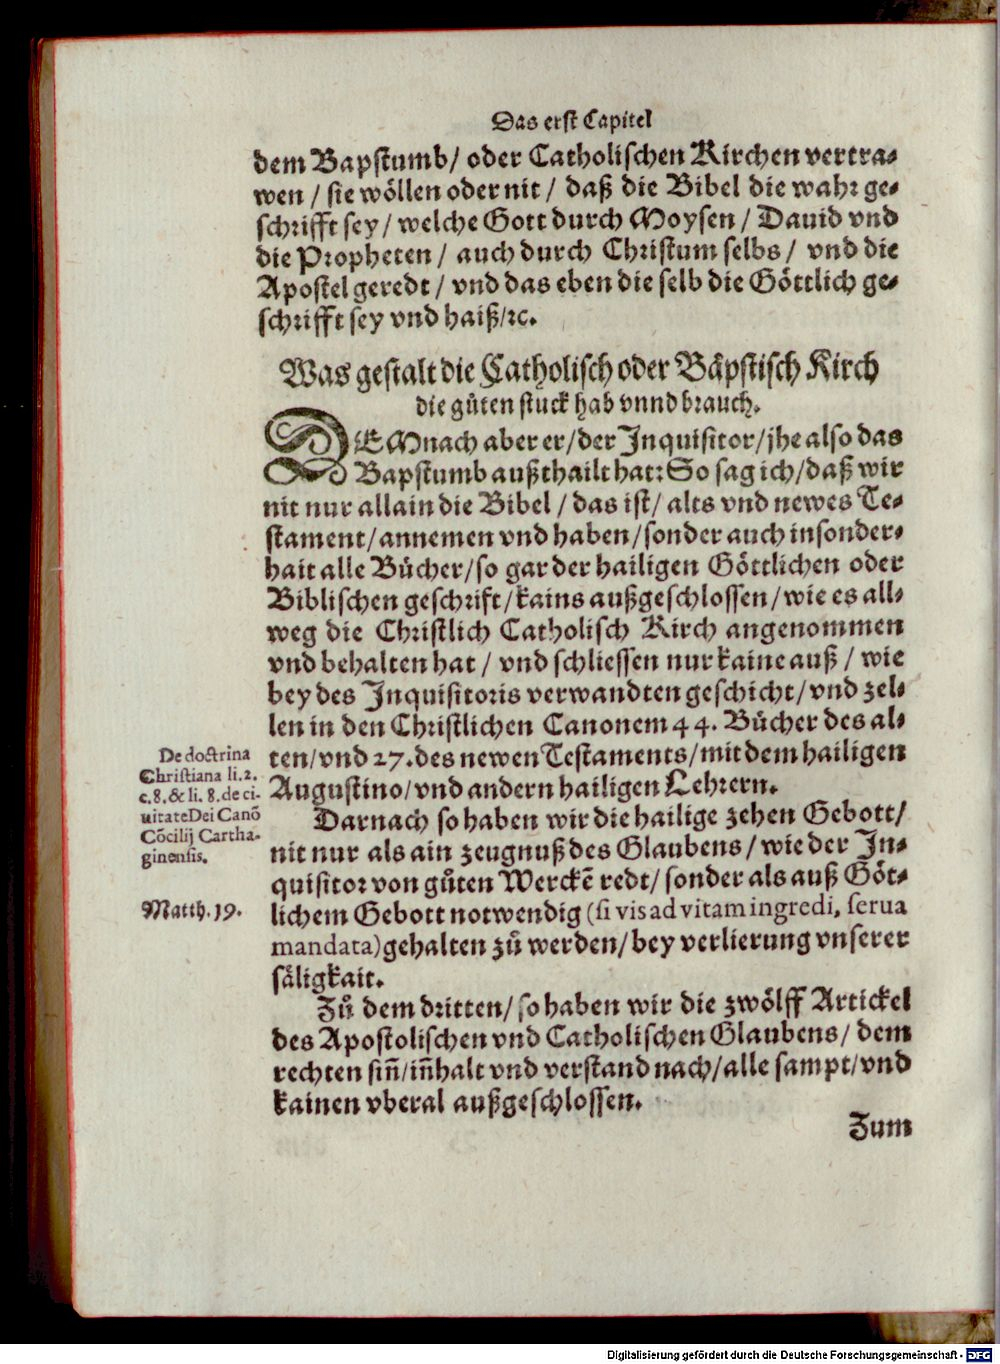 Das erst Capitel
dem Bapstumb/ oder Catholischen Kirchen vertra⸗
wen / sie wöllen oder nit / daß die Bibel die wahr ge⸗
schrifft sey/ welche Gott durch Moysen / Dauid vnd
die Propheten / auch durch Christum selbs/ vnd die
Apostel geredt / vnd das eben die selb die Göttlich ge⸗
schrifft sey vnd haiß/ꝛc.
Was gestalt die Catholisch oder Bäpstisch Kirch
die gůten stuck hab vnnd brauch.
DEMnach aber er/der Inquisitor/jhe also das
Bapstumb außthailt hat: So sag ich/daß wir
nit nur allain die Bibel / das ist/ alts vnd newes Te⸗
stament/annemen vnd haben/sonder auch insonder⸗
hait alle Bücher/so gar der hailigen Göttlichen oder
Biblischen geschrift/kains außgeschlossen/wie es all⸗
weg die Christlich Catholisch Kirch angenommen
vnd behalten hat / vnd schliessen nur kaine auß / wie
bey des Inquisitoris verwandten geschicht/vnd zel⸗
len in den Christlichen Canonem 44. Bücher des al⸗
ten/vnd 27. des newen Testaments/mit dem hailigen
Augustino/vnd andern hailigen Lehrern.
De doctrina
Christiana li. 2.
c. 8. & li. 8. de ci-
uitate Dei Canō
Cōcilij Cartha-
ginensis.
Darnach so haben wir die hailige zehen Gebott/
nit nur als ain zeugnuß des Glaubens/wie der In⸗
quisitor von gůten Werckē redt/sonder als auß Göt⸗
lichem Gebott notwendig (si vis ad vitam ingredi, serua
mandata) gehalten zů werden/bey verlierung vnserer
säligkait.
Matth. 19.
Zů dem dritten/so haben wir die zwölff Artickel
des Apostolischen vnd Catholischen Glaubens/ dem
rechten siñ/iñhalt vnd verstand nach/alle sampt/vnd
kainen vberal außgeschlossen.
Zum
Digitalisierung gefördert durch die Deutsche Forschungsgemeinschaft - DFG